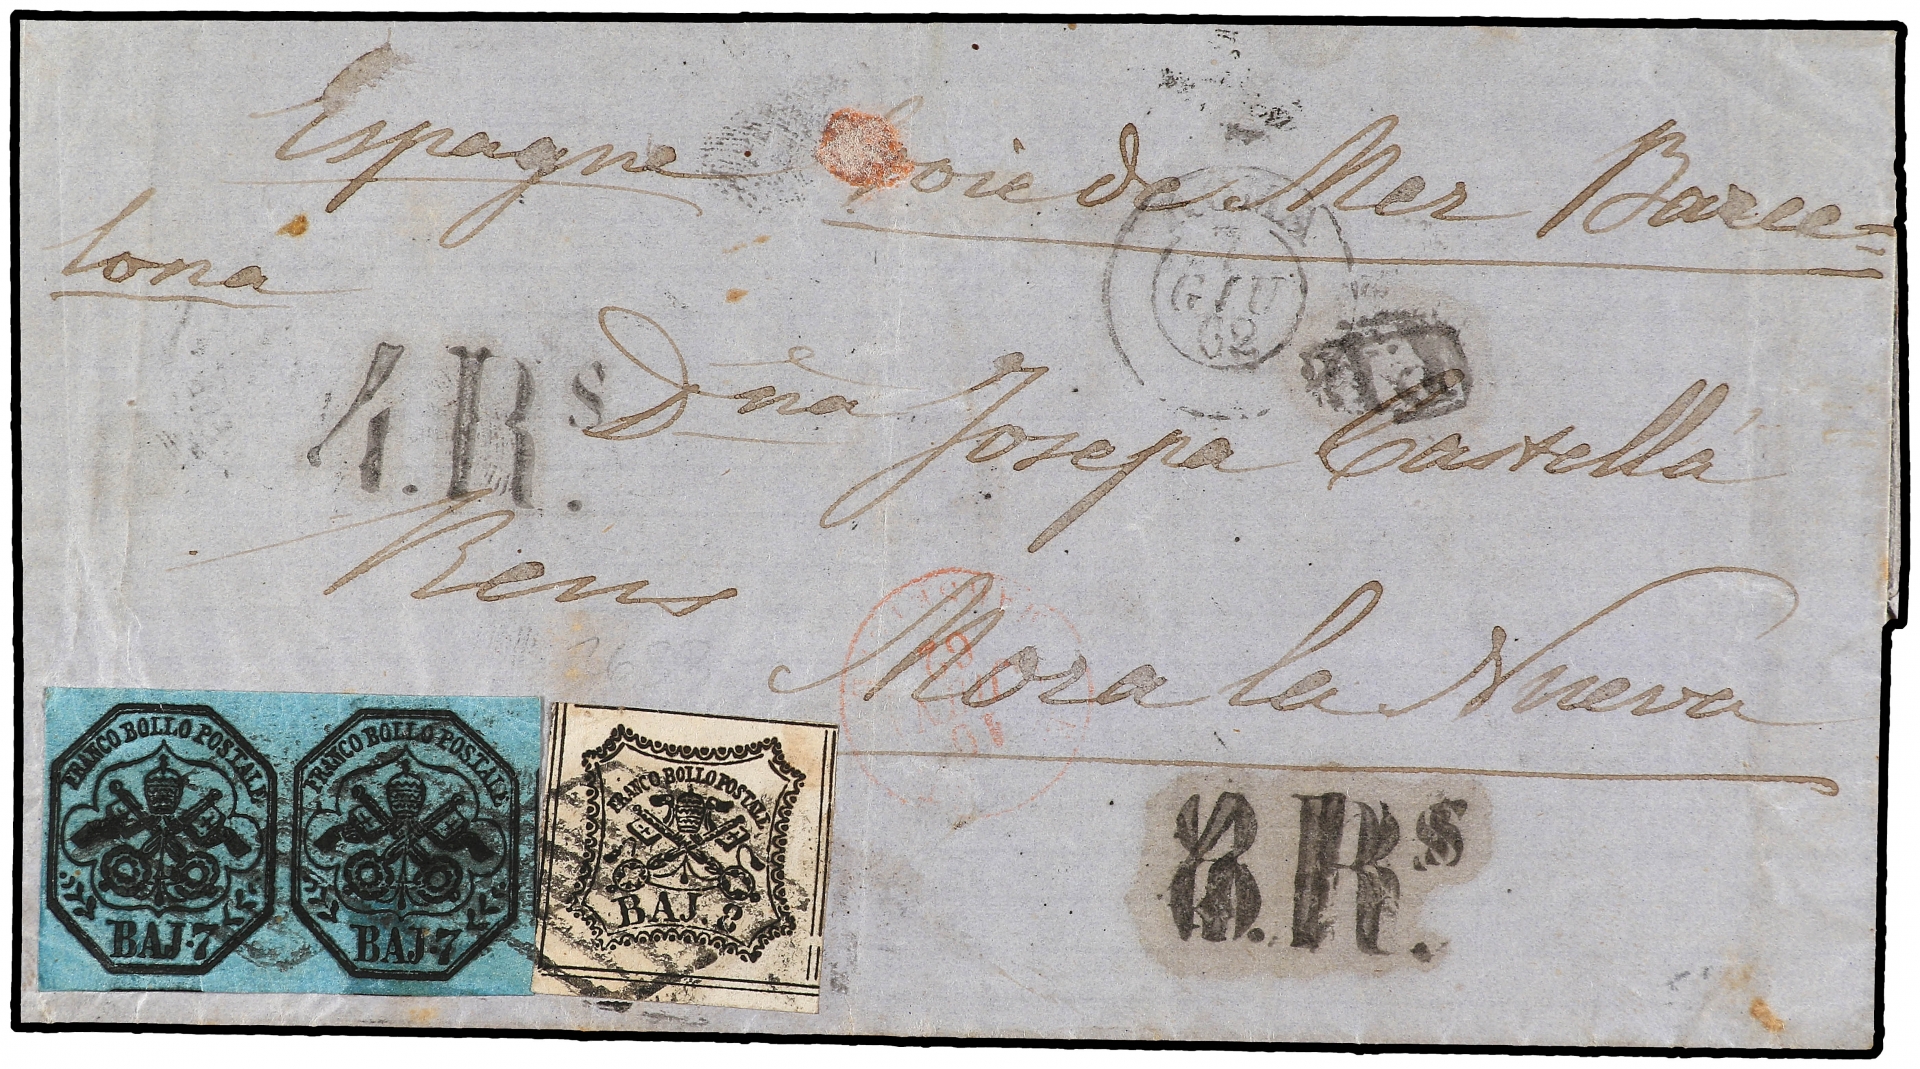 Espagne Voie de Mer Barce=
lona
GIU
62
4.Rs.
Dna Josepa Castella
Reus
Mora la Nueva
FRANCO BOLLO POSTALE
BAJ.7
FRANCO BOLLO POSTALE
BAJ.7
FRANCO BOLLO POSTALE
BAJ. 8
8.Rs.